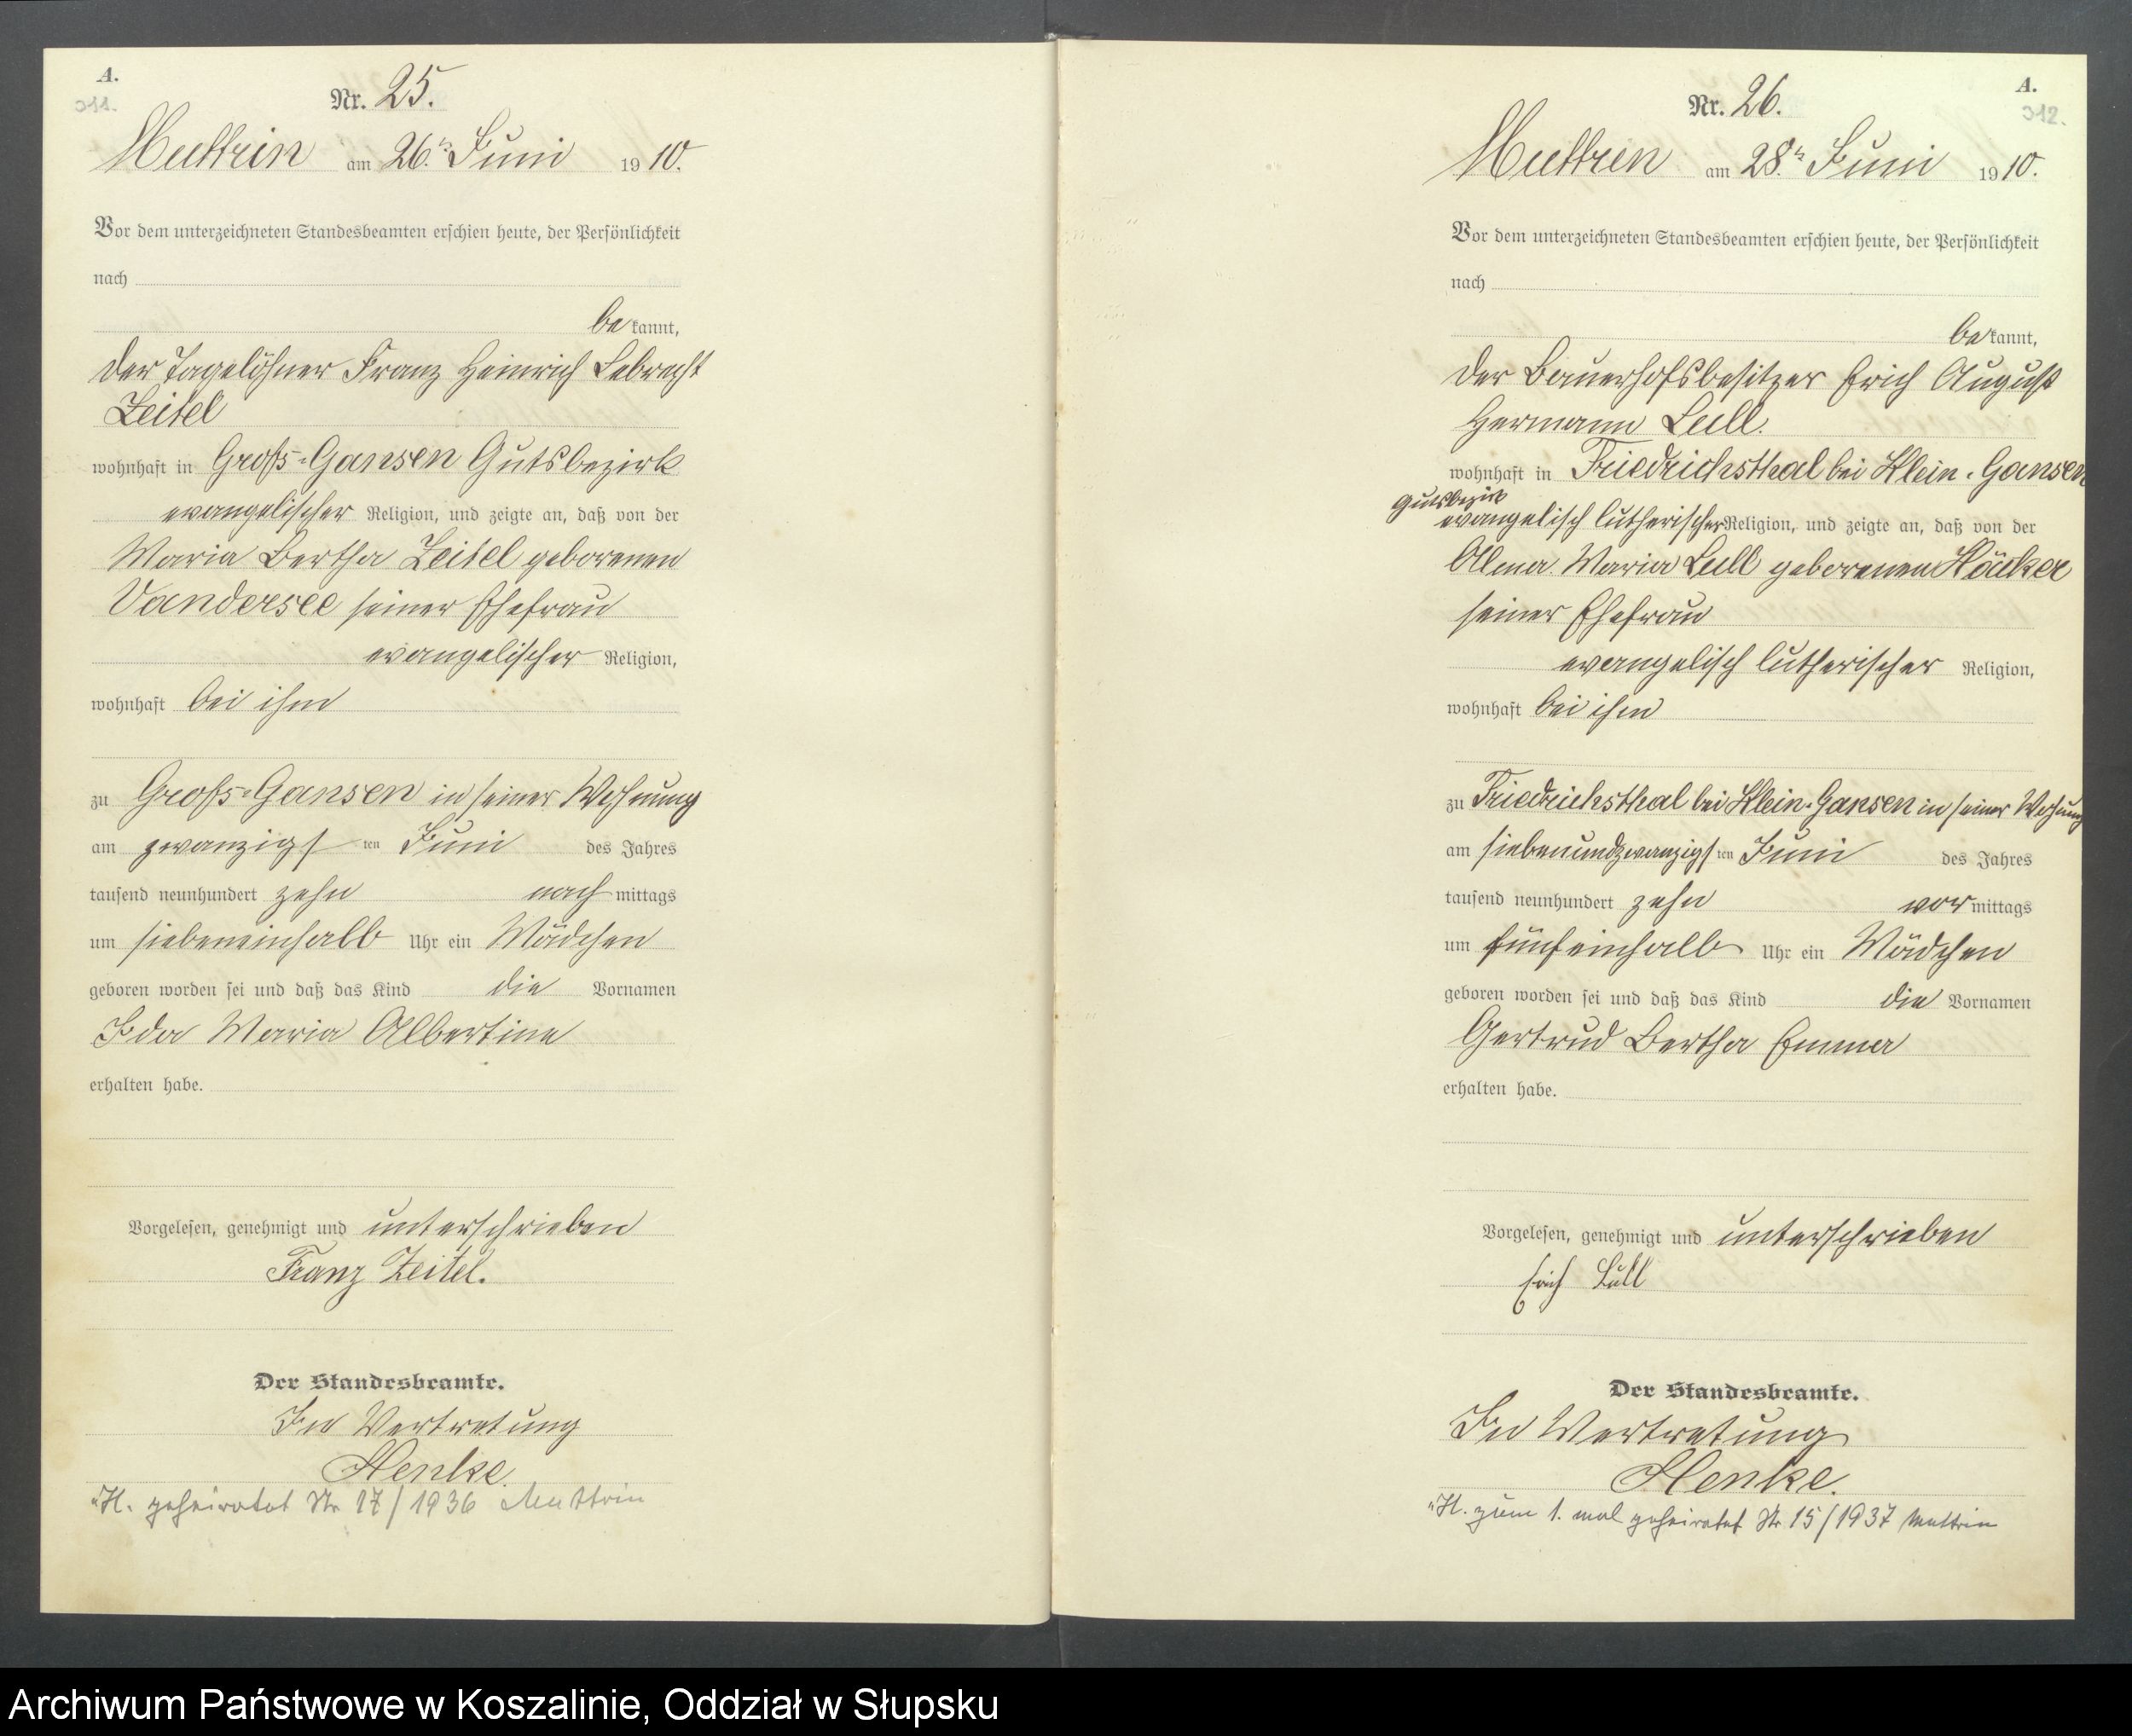 A.
311.
Nr. 25.
Muttrin am 26.ts Juni 1910.
Vor dem unterzeichneten Standesbeamten erschien heute, der Persönlichkeit
nach
bekannt,
der Tagelöhner Franz Heinrich Lebrecht
Zeitel
wohnhaft in Groß-Gansen Gutsbezirk
evangelischer Religion, und zeigte an, daß von der
Maria Bertha Zeitel geborenen
Vandersee seiner Ehefrau
evangelischer Religion,
wohnhaft bei ihm
zu Groß-Gansen in seiner Wohnung
am zwanzigsten Juni des Jahres
tausend neunhundert zehn nachmittags
um siebeneinhalb Uhr ein Mädchen
geboren worden sei und daß das Kind die Vornamen
Ida Maria Albertine
erhalten habe.
Vorgelesen, genehmigt und unterschrieben
Franz Zeitel.
Der Standesbeamte.
In Vertretung
Henke.
geheiratet Nr. 17/1936 Muttrin
A.
312.
Nr. 26.
Muttrin am 28.ts Juni 1910.
Vor dem unterzeichneten Standesbeamten erschien heute, der Persönlichkeit
nach
bekannt,
der Bauerhofsbesitzer Erich August
Hermann Lüll.
wohnhaft in Friedrichsthal bei Klein-Gansen
Gutsbezirk
evangelisch lutherischer Religion, und zeigte an, daß von der
Alma Maria Lüll geborenen
seiner Ehefrau
evangelisch lutherischer Religion,
wohnhaft bei ihm
zu Friedrichsthal bei Klein-Gansen in seiner Wohnung
am siebenundzwanzigsten Juni des Jahres
tausend neunhundert zehn vormittags
um fünfeinhalb Uhr ein Mädchen
geboren worden sei und daß das Kind die Vornamen
Gertrud Bertha Emma
erhalten habe.
Vorgelesen, genehmigt und unterschrieben
Erich Lüll
Der Standesbeamte.
In Vertretung
Henke.
zum 1. mal geheiratet Nr. 15/1937 Muttrin
Archiwum Państwowe w Koszalinie, Oddział w Słupsku